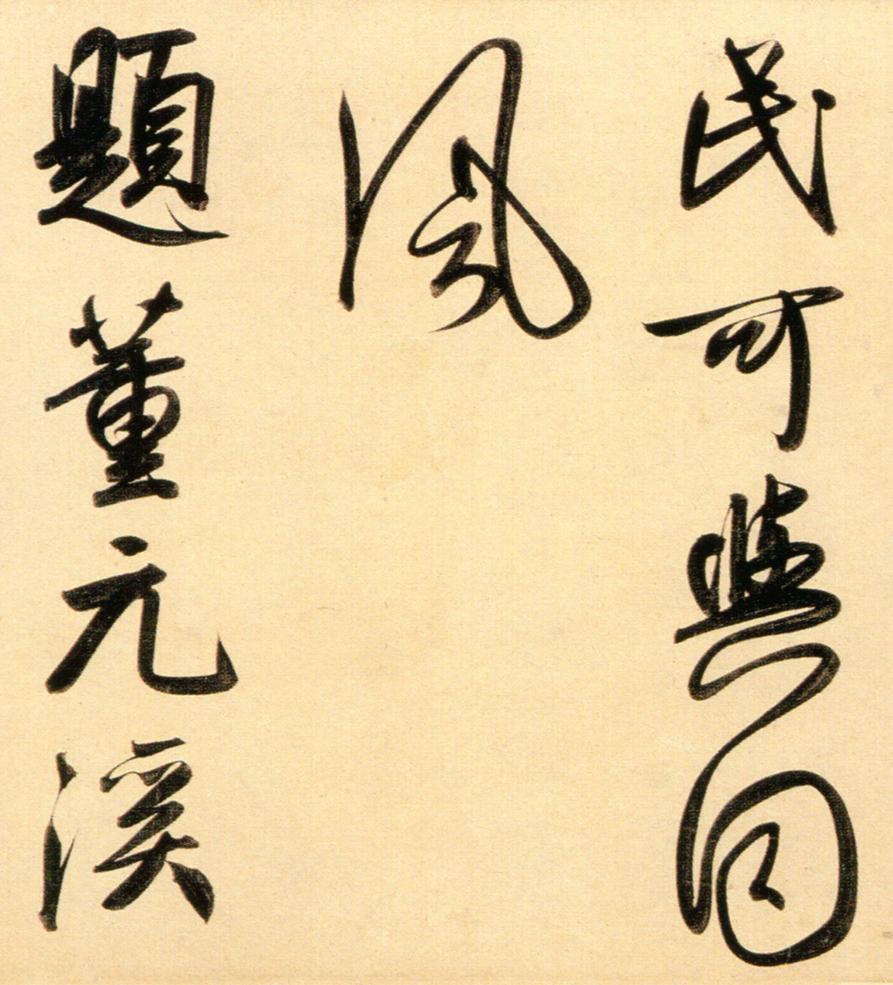 民可與同
風
題董元溪